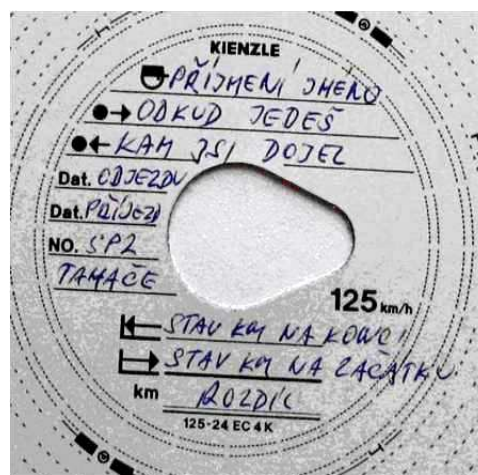 KIENZLE
PŘÍJMENÍ JMENO
ODKUD JEDEŠ
KAM JSI DOJEL
Dat. ODJEZDU
Dat. PŘÍJEZD
NO. SPZ
TAHAČE
125 km/h
STAV KM NA KONCI
STAV KM NA ZAČÁTKU
km ROZDÍL
125-24 EC 4 K